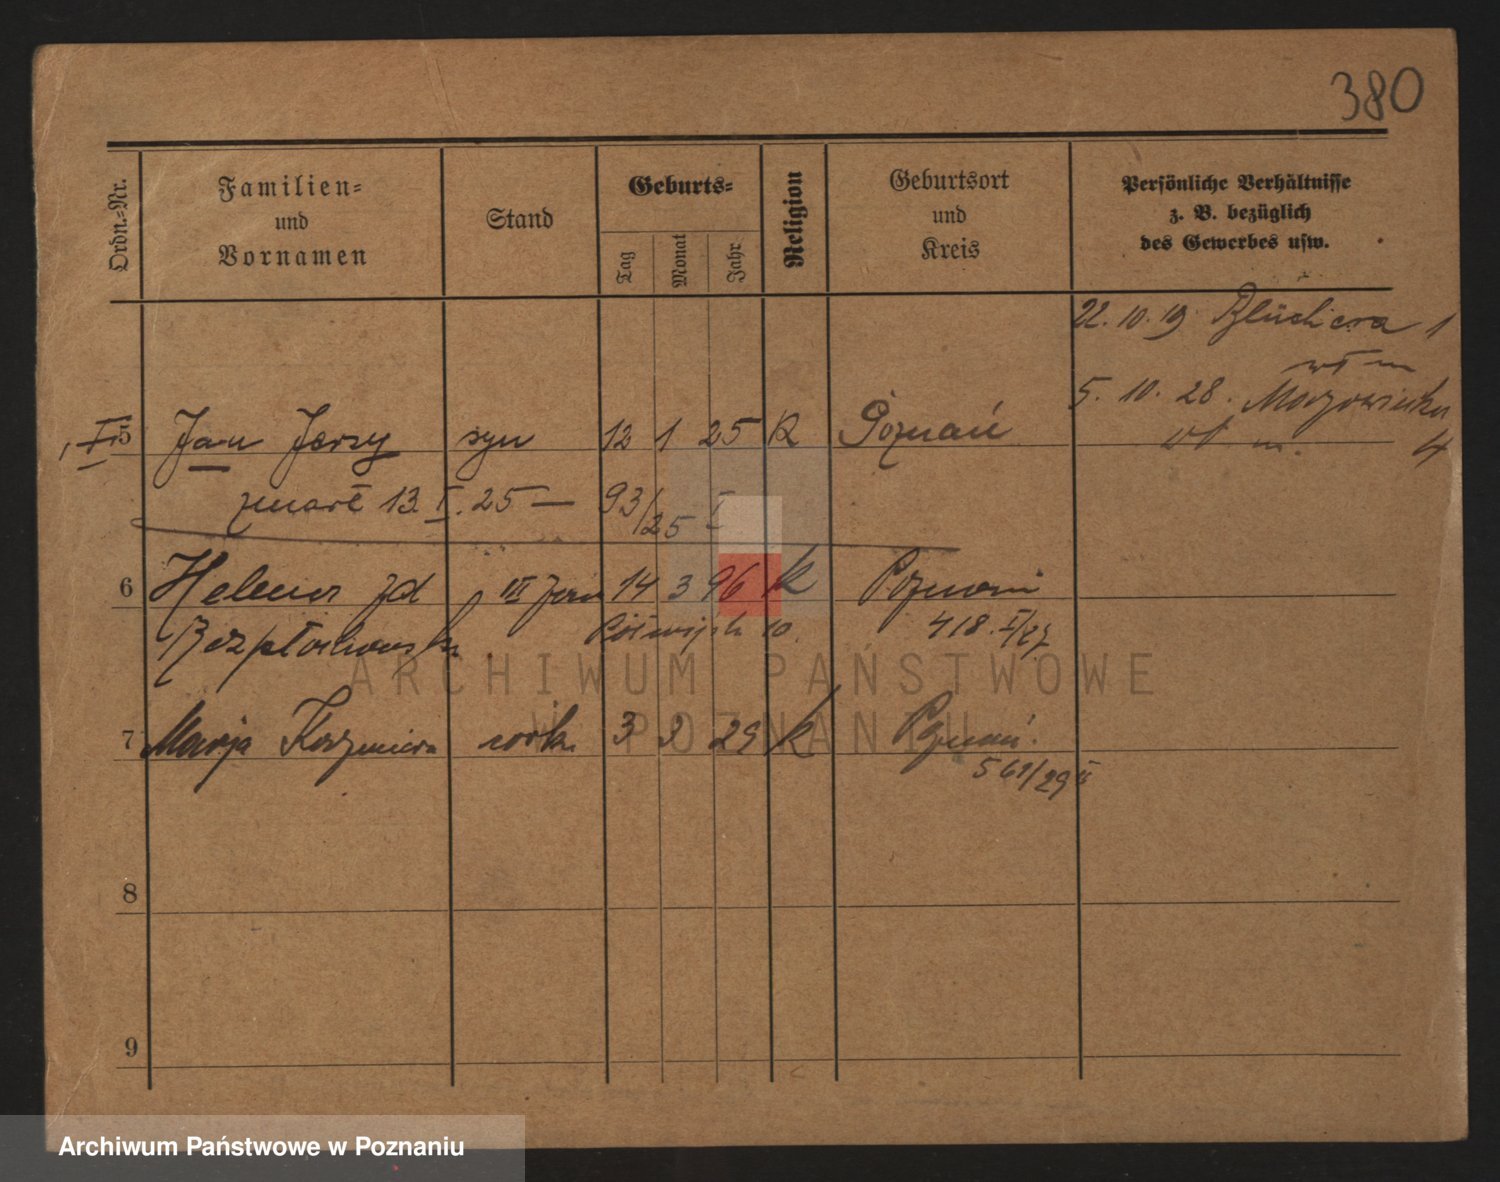 380
Ordn.-Nr.
Familien-
und
Vornamen
Stand
Geburts-
Tag
Monat
Jahr
Religion
Geburtsort
und
Kreis
Persönliche Verhältnisse
z. B. bezüglich
des Gewerbes usw.
22. 10. 19 Blüchera 1
wł m
5. 10. 28. Mazowiecka
wł m. 4
5 Jan Jerzy syn 12 1 25 K Poznań
zmarł 13. I. 25 — 93/25 I
6 Helena zd III żona 14 3 96 K Poznań
418. I/27
7 Marja Kazimiera córka 3 2 29 K Poznań.
561/29 II
8
9
ARCHIWUM PAŃSTWOWE
W POZNANIU
Archiwum Państwowe w Poznaniu